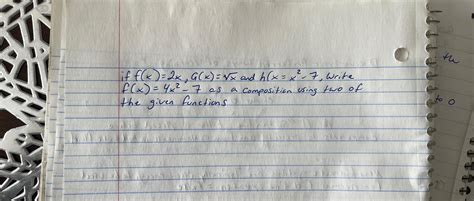 if f(x)=2x, G(x)=√x and h(x = x²-7, write
f(x)=4x²-7 as a composition using two of
the given functions
the
to 0